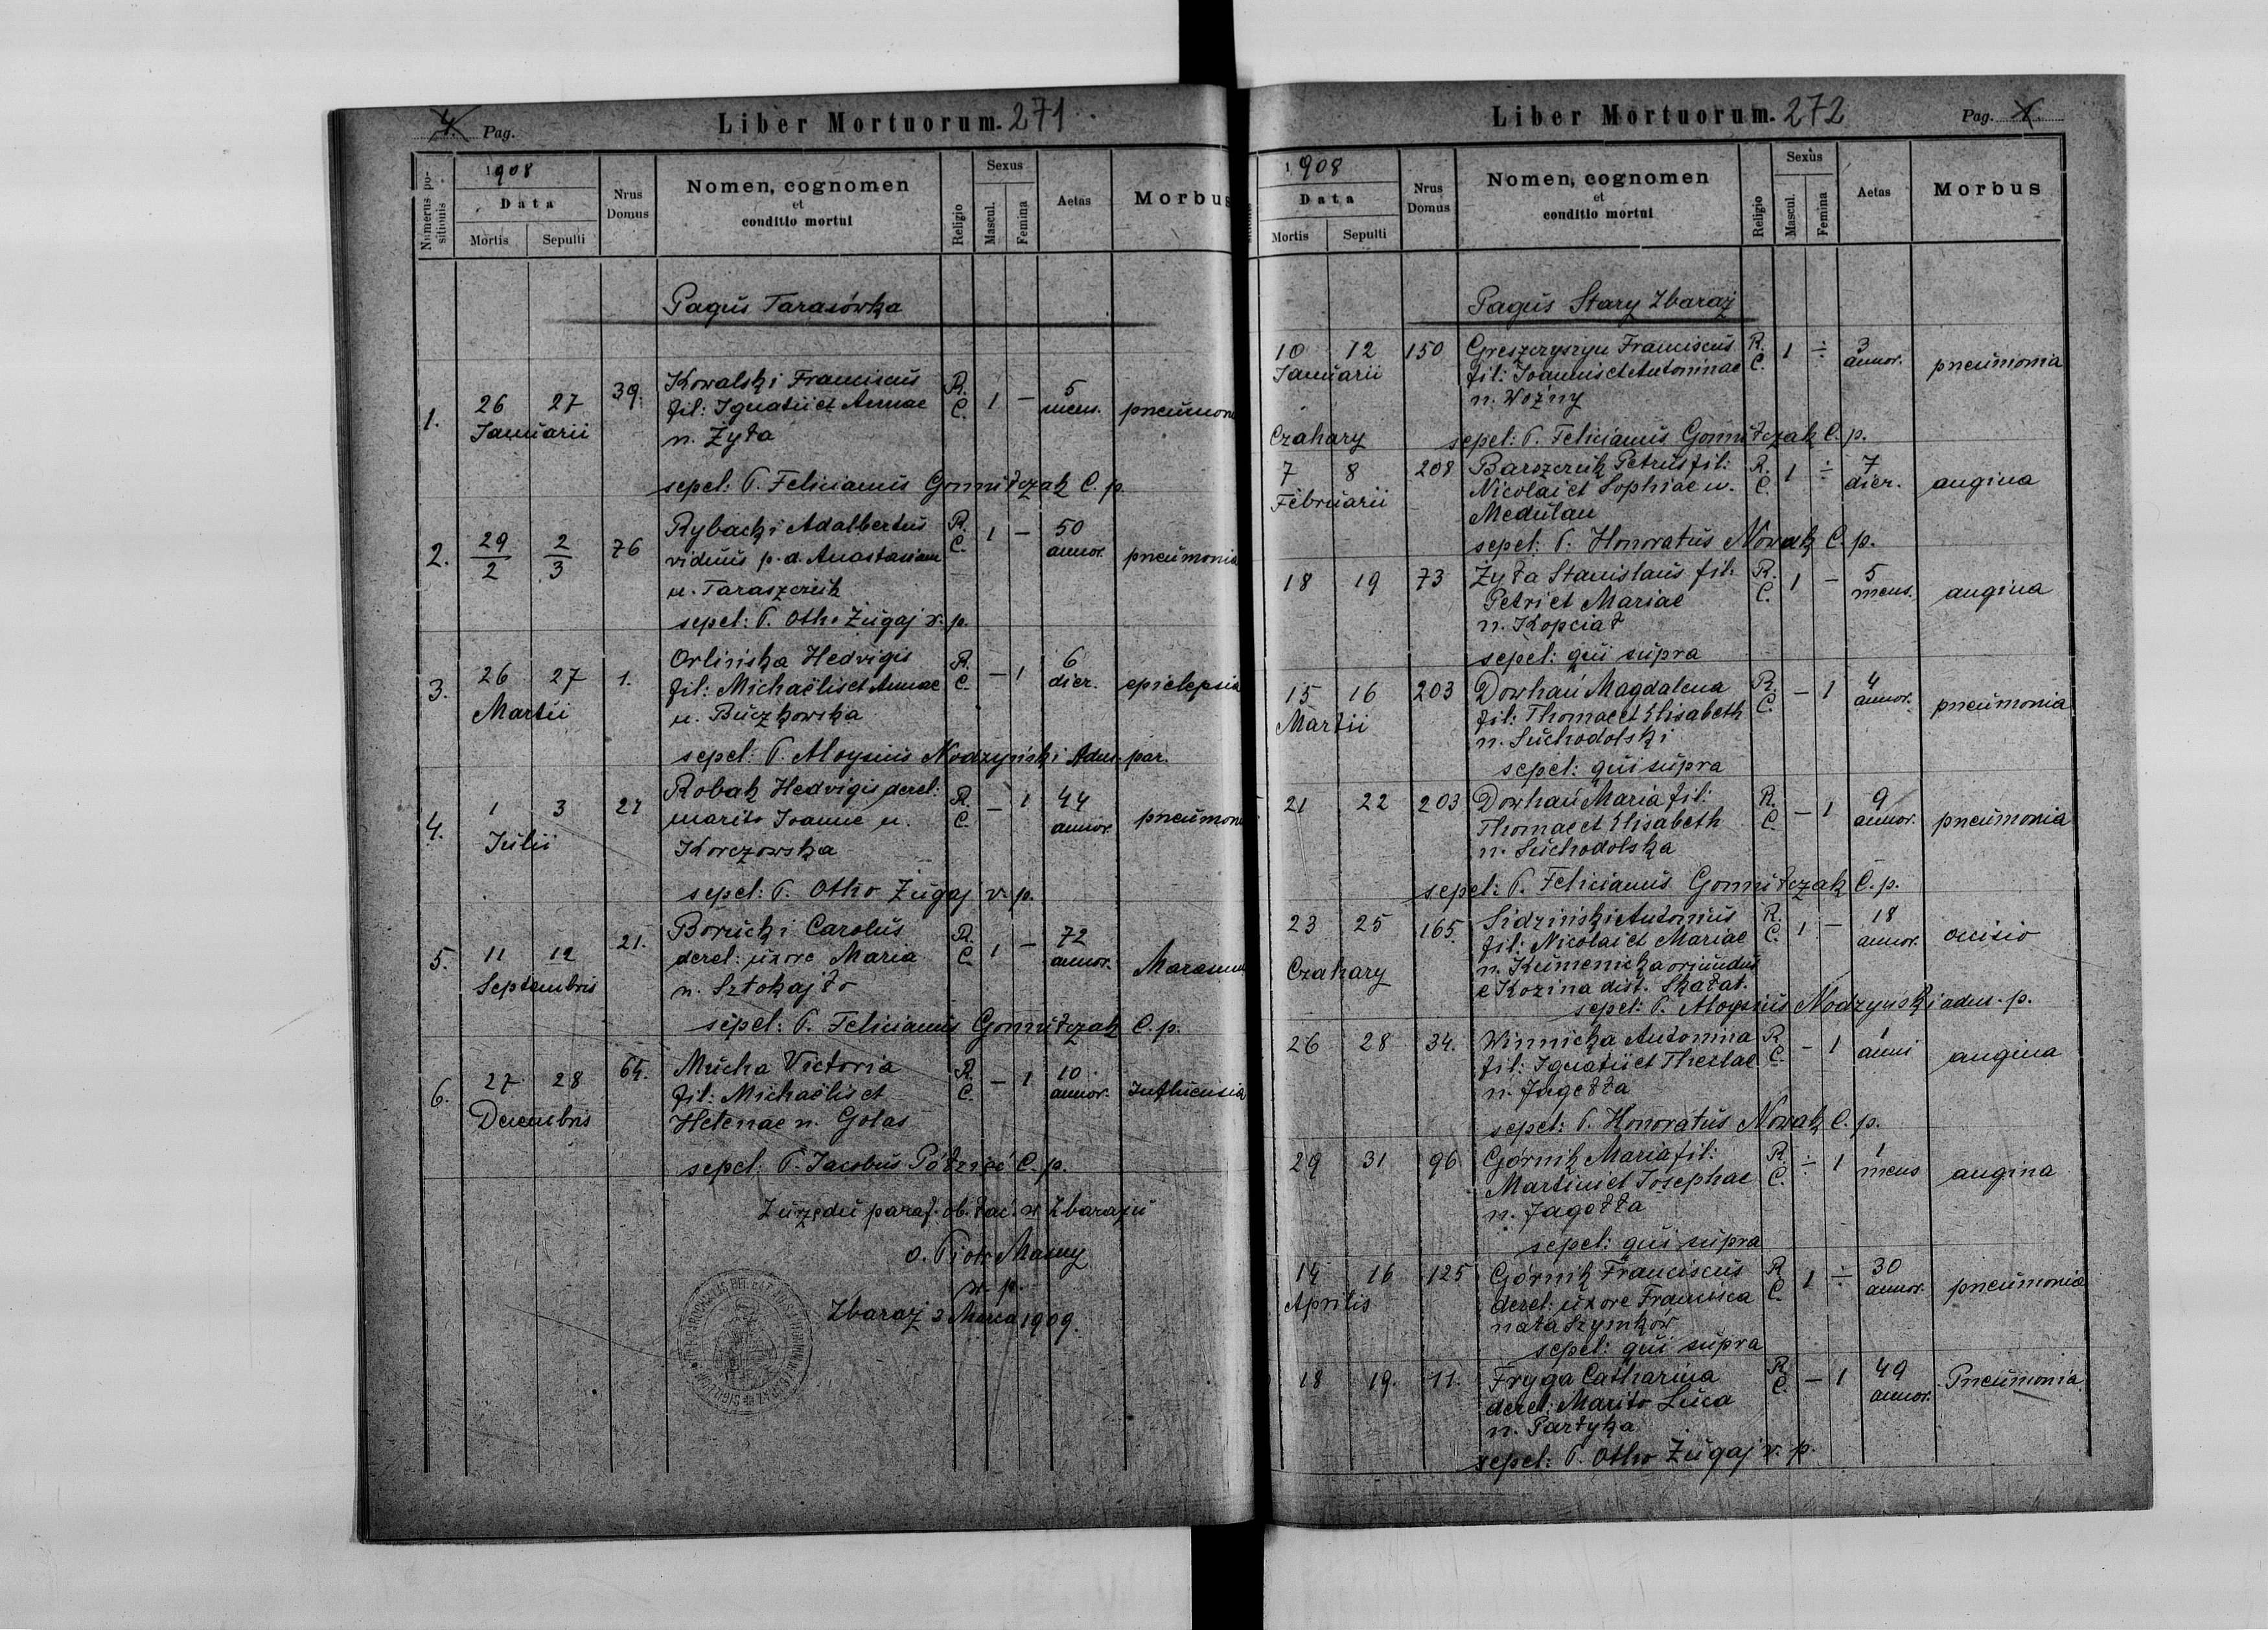 4. Pag.
Liber Mortuorum. 271.
Numerus positionis
1908
Data
Mortis
Sepulti
Nrus Domus
Nomen, cognomen
et
conditio mortui
Religio
Sexus
Mascul.
Femina
Aetas
Morbus
Pagus Tarasówka
1. 26 27 39. Kowalski Franciscus R. C. 1 — 5 mens. pneumon
Januarii fil: Ignatii et Annae
n. Żyła
sepel: P. Felicianus Gomułczak C. p.
2. 29/2 2/3 76 Rybacki Adalbertus R. C. 1 — 50 annor. pneumonia
viduus p. d. Anastasiam
n. Taraszczuk
sepel: P. Otho Żugaj v. p.
3. 26 27 1. Orlińska Hedvigis R. C. — 1 6 dier. epilepsia
Martii fil: Michaëlis et Annae
n. Buczkowska
sepel: P. Aloysius Nodzyński Adm. par.
4. 1 3 27 Robak Hedvigis derel: R. C. — 1 44 annor. pneumon
Julii marito Joanne n.
Korczowska
sepel: P. Otho Żugaj v. p.
5. 11 12 21. Borucki Carolus R. C. 1 — 72 annor. Marasmu
Septembris derel: uxore Maria
n. Sztokajło
sepel: P. Felicianus Gomułczak C. p.
6. 27 28 64. Mucha Victoria R. C. — 1 10 annor. Influensia
Decembris fil: Michaëlis et
Helenae n. Golas
sepel: P. Jacobus Półzięć C. p.
Z urzędu paraf. ob. łać. w Zbarażu
o. Piotr Masny
w. p.
Zbaraż 3 Marca 1909.
Liber Mortuorum. 272
Pag.
1908
Data
Mortis
Sepulti
Nrus Domus
Nomen, cognomen
et
conditio mortui
Religio
Sexus
Mascul.
Femina
Aetas
Morbus
Pagus Stary Zbaraż
10 12 150 Greszczyszyn Franciscus R. C. 1 ÷ 3 annor. pneumonia
Januarii fil: Joannis et Antoninae
n. Woźny
Czahary sepel: P. Felicianus Gomułczak C. p.
7 8 208 Barszczuk Petrus fil: R. C. 1 ÷ 7 dier. angina
Februarii Nicolai et Sophiae n.
Medulan
sepel: P. Honoratus Nowak C. p.
18 19 73 Żyła Stanislaus fil: R. C. 1 — 5 mens. angina
Petri et Mariae
n. Kopciał
sepel: qui supra
15 16 203 Dowhań Magdalena R. C. — 1 4 annor. pneumonia
Martii fil: Thomae et Elisabeth
n. Suchodolski
sepel: qui supra
21 22 203 Dowhań Maria fil: R. C. — 1 9 annor. pneumonia
Thomae et Elisabeth
n. Suchodolska
sepel: P. Felicianus Gomułczak C. p.
23 25 165. Sidziński Antonius R. C. 1 — 18 annor. occisio
fil: Nicolai et Mariae
Czahary n. Krumenicka oriundus
e Kozina dist. Skałat.
sepel: P. Aloysius Nodzyński adm. p.
26 28 34. Winnicka Antonina R C. — 1 1 anni angina
fil: Ignatii et Theclae
n. Jagełła
sepel: P. Honoratus Nowak C. p.
29 31 96 Górnik Maria fil: R. C. ÷ 1 1 mens angina
Martini et Josephae
n. Jagełła
sepel: qui supra
14 16 125 Górnik Franciscus R C. 1 ÷ 30 annor. pneumonia
Aprilis derel: uxore Francisca
nata Szymków
sepel: qui supra
18 19. 11. Fryga Catharina R C. — 1 49 annor. Pneumonia.
derel: Marito Luca
n. Partyka
sepel: P. Otho Żugaj v. p.